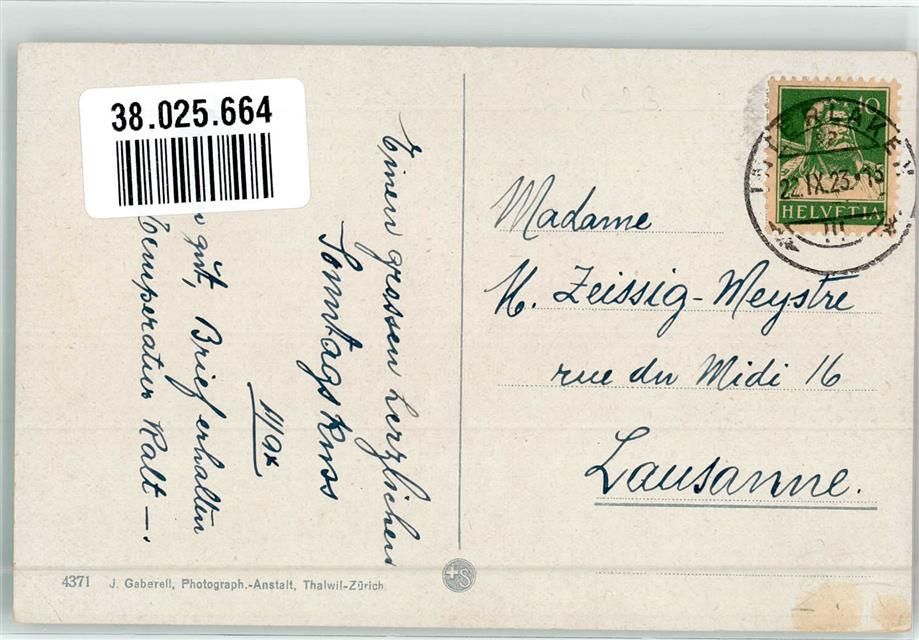 38.025.664
Einen grossen herzlichen
Sonntagskuss
Max
gut, Brief erhalten
Temperatur kalt —.
Madame
M. Zeissig-Meystre
rue du Midi 16
Lausanne.
10
HELVETIA
INTERLAKEN
22.IX.23.
III
4371 J. Gaberell, Photograph.-Anstalt, Thalwil-Zürich
+S